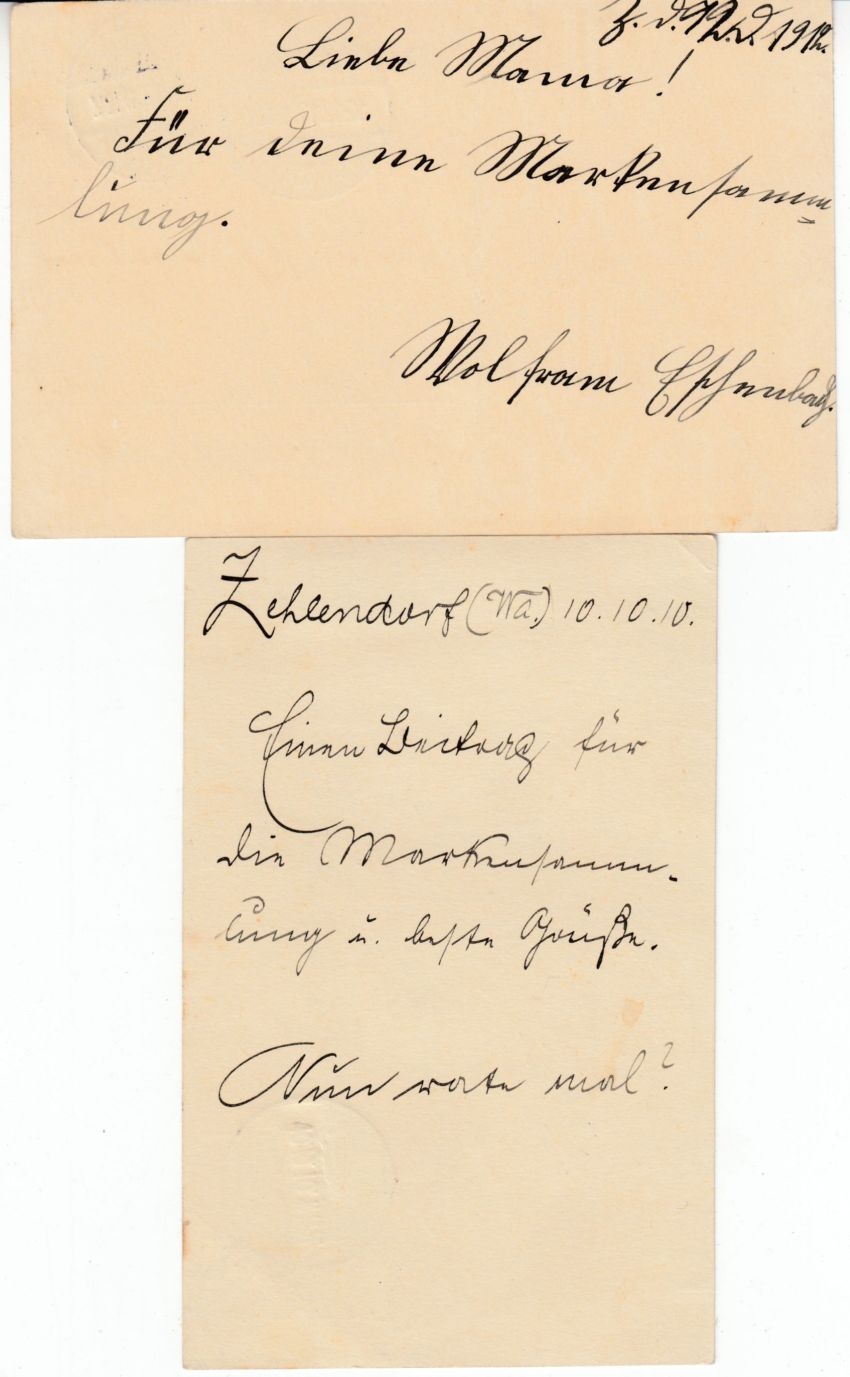 Z. d. 1912.
Liebe Mama!
Für deine Markensamm=
lung.
Wolfram Eschenbach.
Zehlendorf (Wa.) 10.10.10.
Einen Beitrag für
die Markensamm-
lung u. beste Grüße.
Nun rate mal?